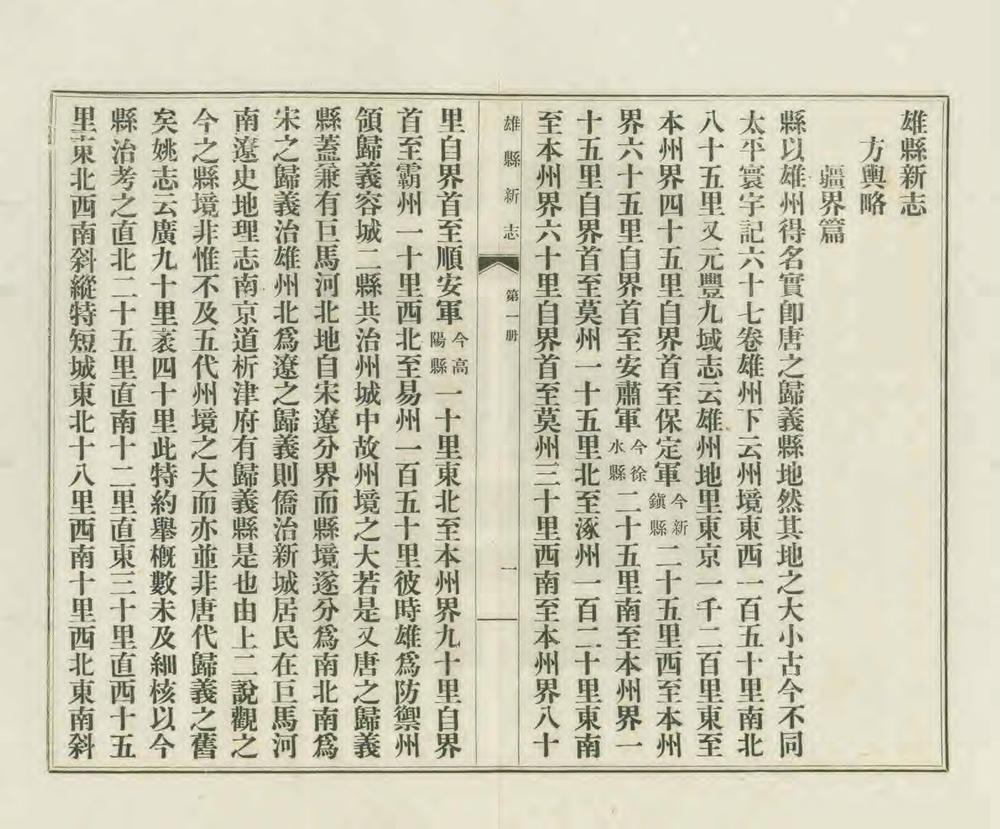 雄縣新志
方輿略
疆界篇
縣以雄州得名實卽唐之歸義縣地然其地之大小古今不同
太平寰宇記六十七卷雄州下云州境東西一百五十里南北
八十五里又元豐九域志云雄州地里東京一千二百里東至
本州界四十五里自界首至保定軍今新鎭縣二十五里西至本州
界六十五里自界首至安肅軍今徐水縣二十五里南至本州界一
十五里自界首至莫州一十五里北至涿州一百二十里東南
至本州界六十里自界首至莫州三十里西南至本州界八十
雄縣新志 第一册 一
里自界首至順安軍今高陽縣一十里東北至本州界九十里自界
首至霸州一十里西北至易州一百五十里彼時雄爲防禦州
領歸義容城二縣共治州城中故州境之大若是又唐之歸義
縣蓋兼有巨馬河北地自宋遼分界而縣境遂分爲南北南爲
宋之歸義治雄州北爲遼之歸義則僑治新城居民在巨馬河
南遼史地理志南京道析津府有歸義縣是也由上二說觀之
今之縣境非惟不及五代州境之大而亦並非唐代歸義之舊
矣姚志云廣九十里袤四十里此特約舉槪數未及細核以今
縣治考之直北二十五里直南十二里直東三十里直西十五
里東北西南斜縱特短城東北十八里西南十里西北東南斜